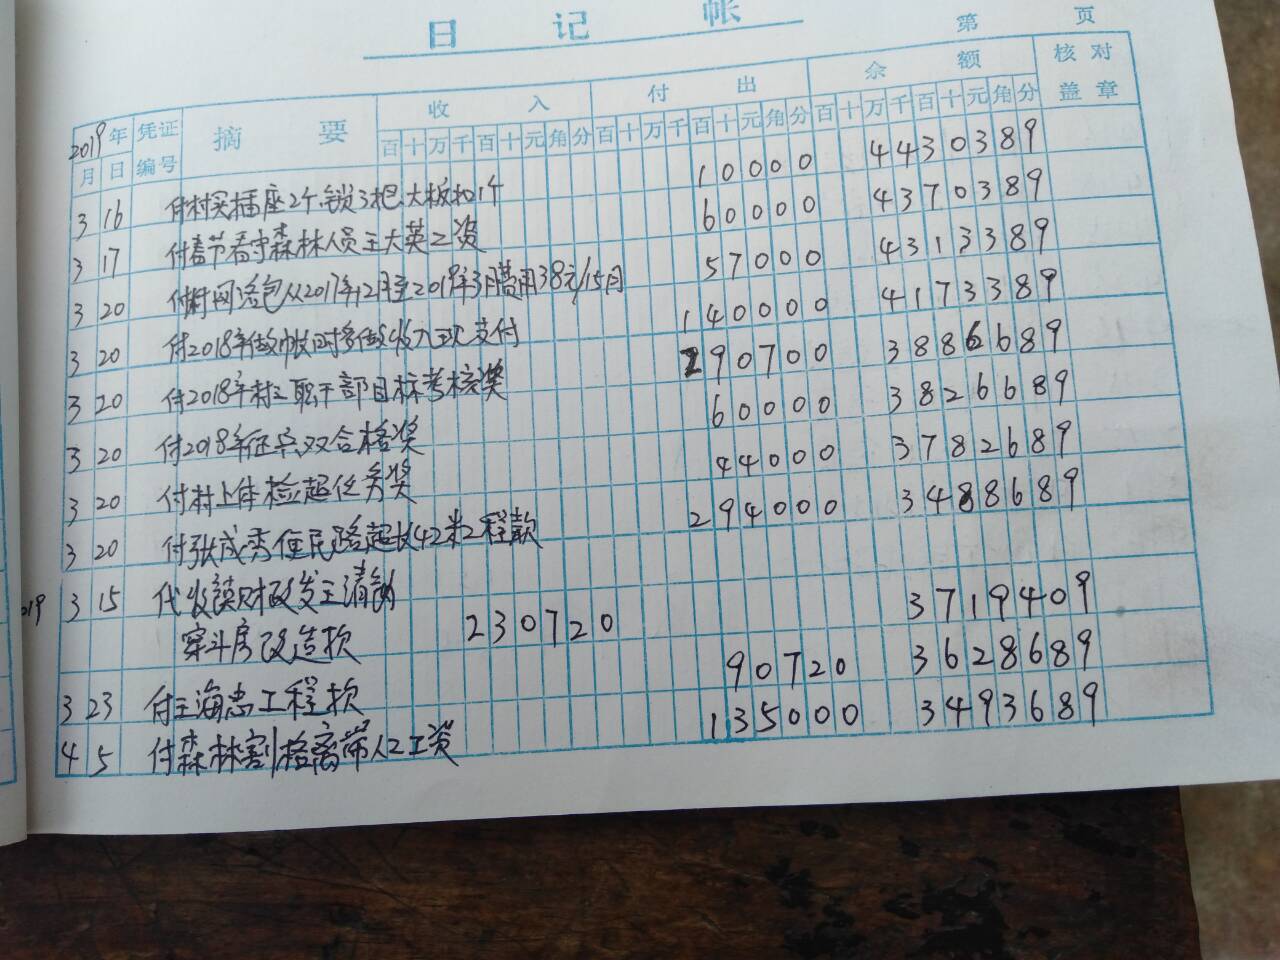 日记帐
第 页
2019年 凭证编号 摘要 收入 付出 余额 核对盖章
月 日 百十万千百十元角分 百十万千百十元角分 百十万千百十元角分
3 16 付村买插座2个.锁3把.大板扣1个 10000 4430389
3 17 付春节看守森林人员王大英工资 60000 4370389
3 20 付村网络包从2017年12月至2019年3月费用38元/15月 57000 4313389
3 20 付2018年做帐时多做收入现支付 140000 4173389
3 20 付2018年村三职干部目标考核奖 290700 3886689
3 20 付2018年征兵双合格奖 60000 3826689
3 20 付村上体检超任务奖 44000 3782689
3 20 付张成秀便民路超长42米工程款 294000 3488689
019 3 15 代收镇财政发王清
穿斗房改造款 230720 3719409
3 23 付王海忠工程款 90720 3628689
4 5 付森林割格离带人工工资 135000 3493689